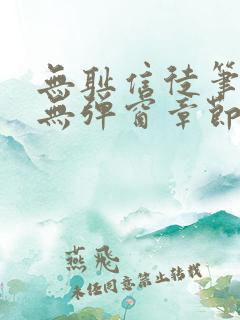 無耻信徒筆
無彈窗章節
燕飛
未經同意禁止轉載